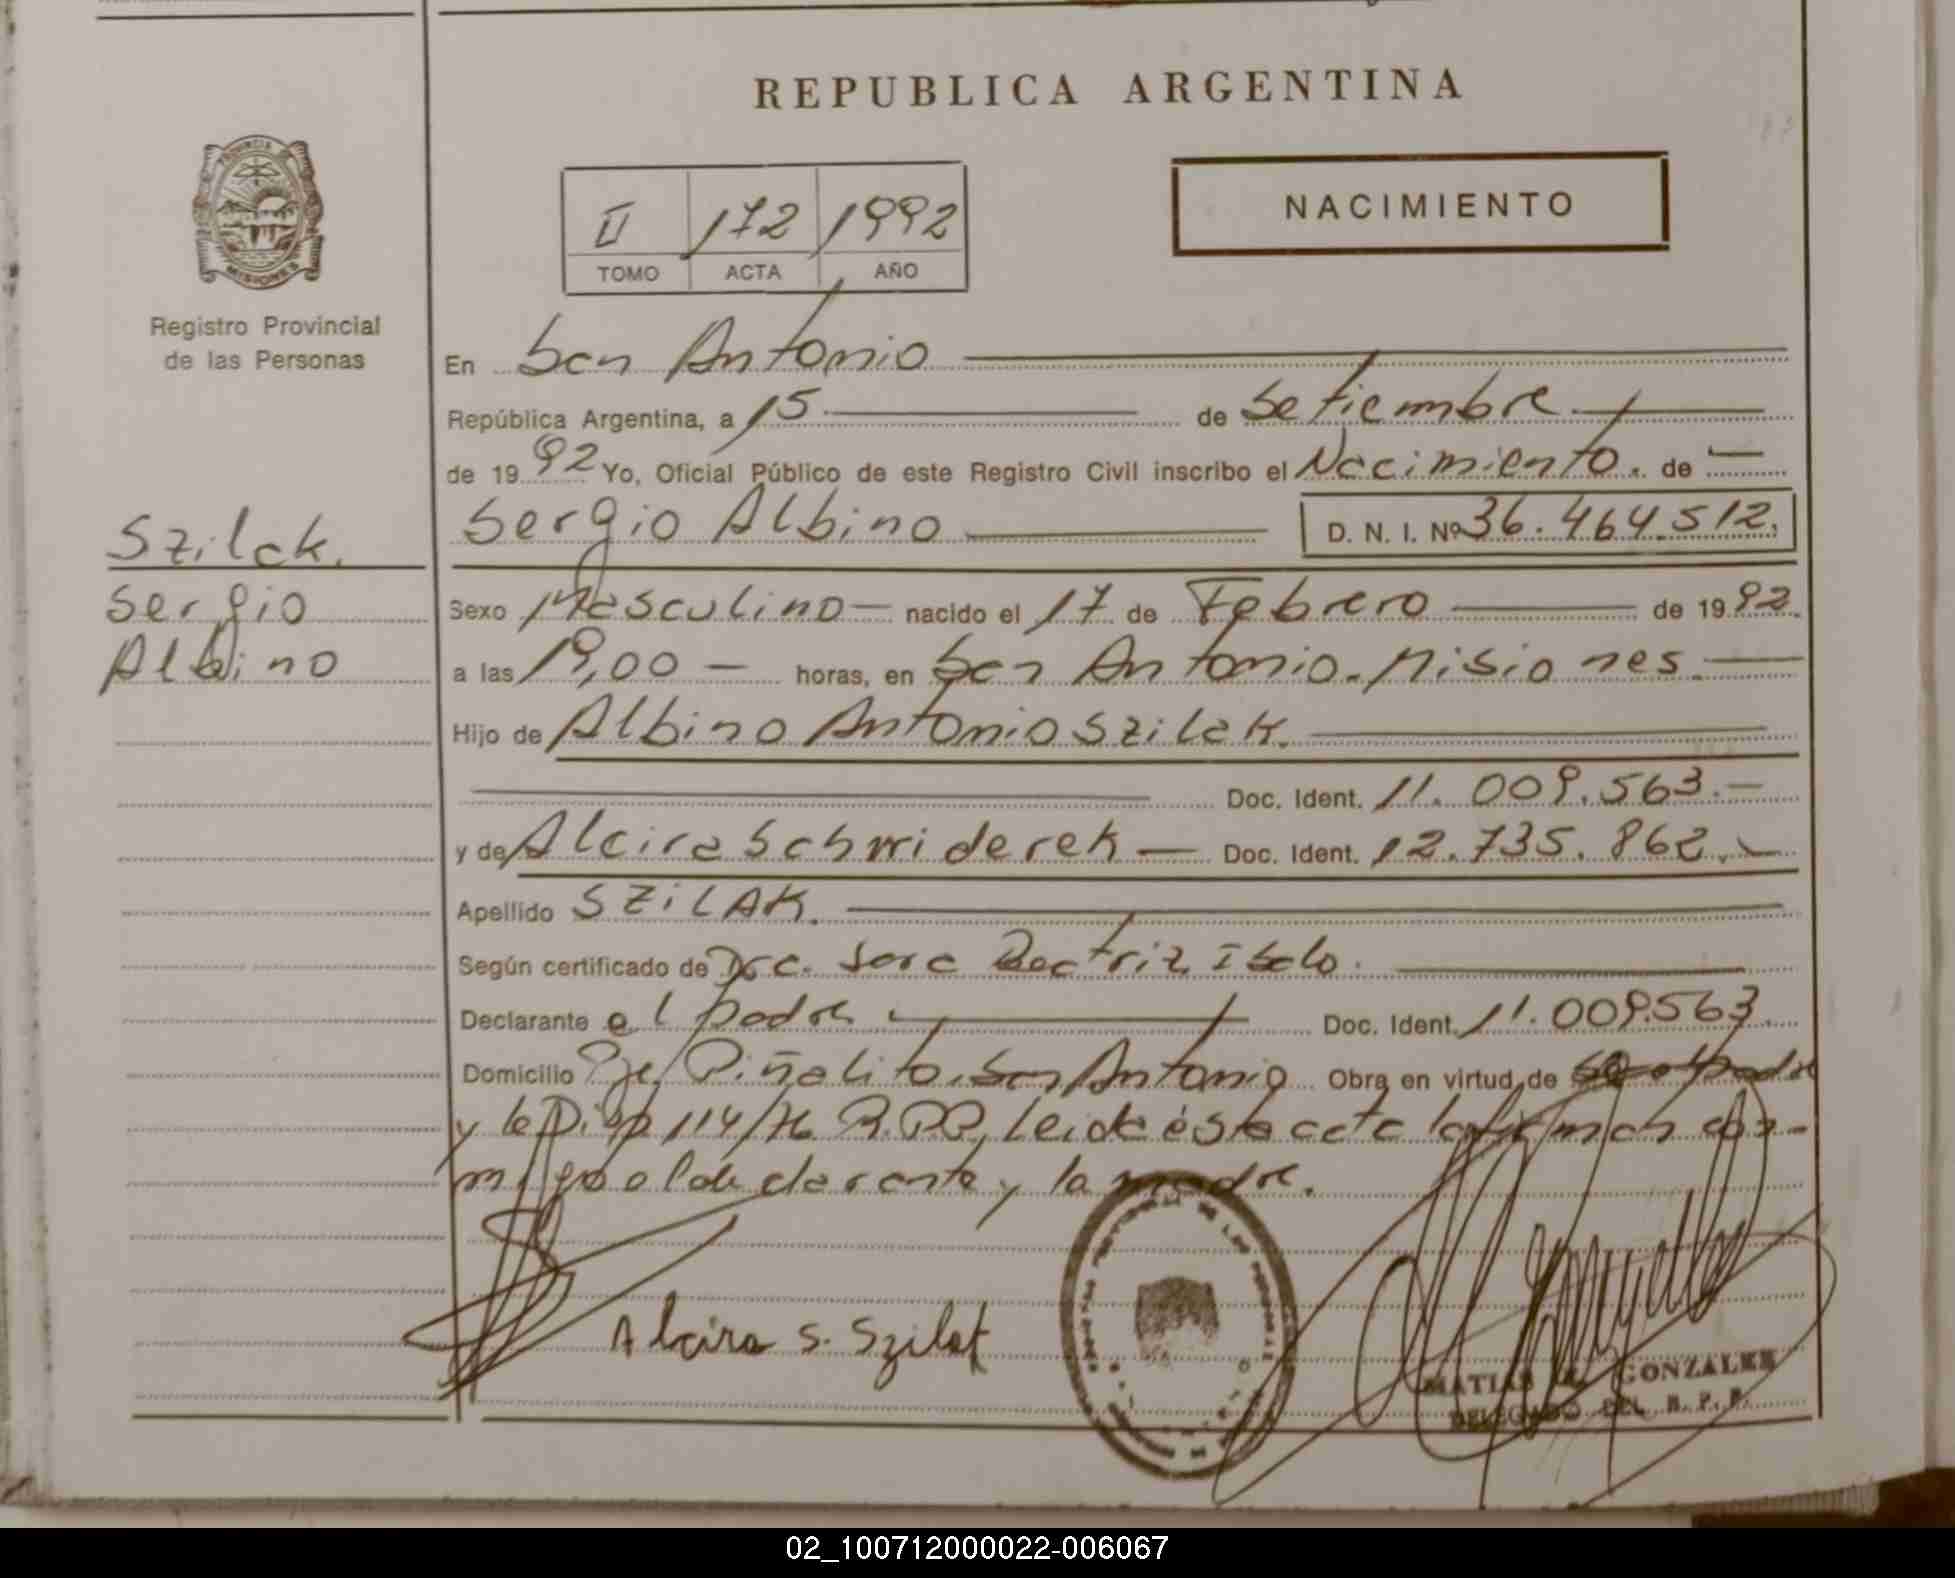 REPUBLICA ARGENTINA
PROVINCIA DE
MISIONES
Registro Provincial
de las Personas
II 172 1992
TOMO ACTA AÑO
NACIMIENTO
En San Antonio
República Argentina, a 15 de Setiembre
de 1992 Yo, Oficial Público de este Registro Civil inscribo el Nacimiento. de
Sergio Albino D. N. I. Nº 36.464.512.
Szilak.
Sergio
Albino
Sexo Masculino nacido el 17 de Febrero de 1992.
a las 19,00 horas, en San Antonio. Misiones.
Hijo de Albino Antonio Szilak.
Doc. Ident. 11.009.563.
y de Alcira Schmiderek Doc. Ident. 12.735.862.
Apellido SZILAK.
Según certificado de Dra. Sara Beatriz
Declarante el padre Doc. Ident. 11.009.563
Domicilio Pje. Piñalito. San Antonio Obra en virtud de
y la Disp 114/76 R.P.P. Leida ésta acta la firman con-
migo el declarante y la madre.
Alcira S. Szilak
MATIAS GONZALEZ
DELEGADO DEL R. P. P.
02_100712000022-006067